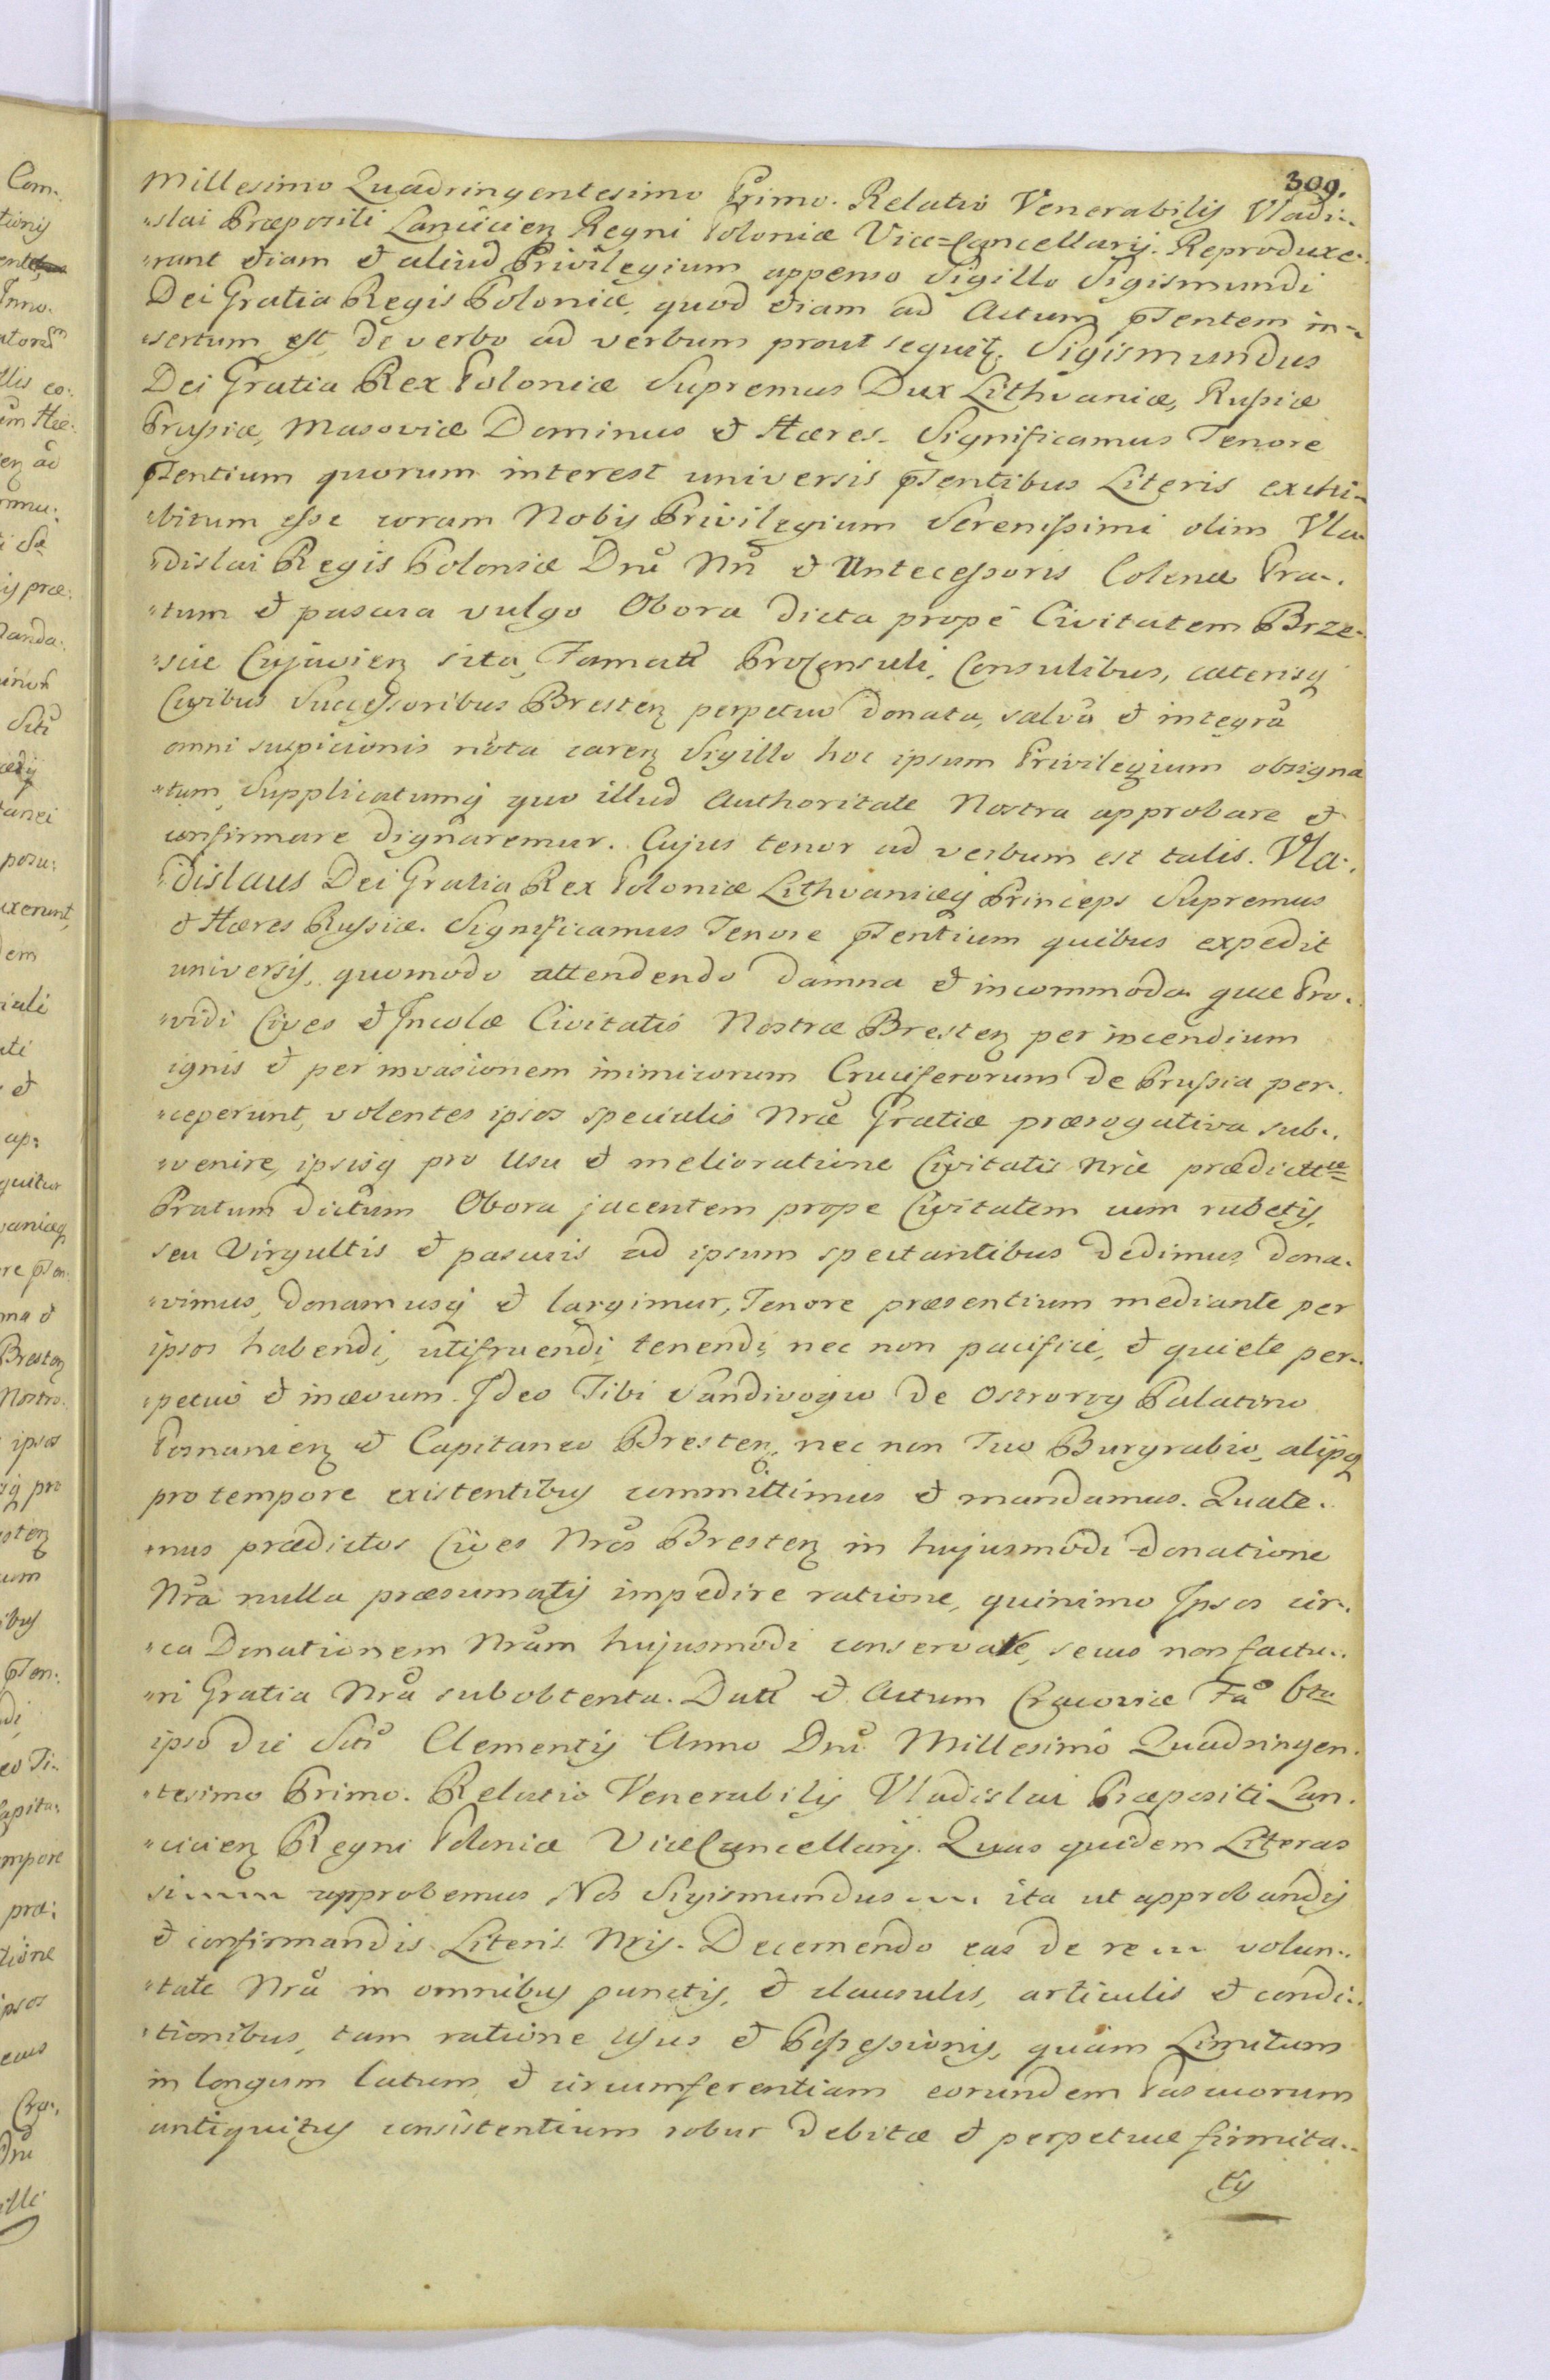 309.
Millesimo Quadringentesimo Primo. Relatio Venerabilis Vladi-
slai Præpositi Lancicien Regni Poloniæ Vice=Cancellarij. Reproduxe-
runt etiam et aliud Privilegium appenso Sigillo Sigismundi
Dei Gratia Regis Poloniæ, quod etiam ad Actum pntentem in-
sertum est, de verbo ad verbum prout sequit. Sigismundus
Dei Gratia Rex Poloniæ Supremus Dux Lithvaniæ, Russiæ
Prussiæ, Masoviæ Dominus et Hæres. Significamus Tenore
pntentium quorum interest universis pntentibus Literis exhi-
bitum esse coram Nobis Privilegium Serenissimi olim Vla-
dislai Regis Poloniæ Dni Nri et Antecessoris Colendi Pra-
tum et pascua vulgo Obora dicta prope Civitatem Brze-
scie Cujavien sita, Famatt Proconsuli, Consulibus, cæterisq
Civibus Successoribus Bresten perpetuo donata, salvũ et integrũ
omni suspicionis nota caren Sigillo hoc ipsum Privilegium obsigna
tum, Supplicatumq quo illud Authoritate Nostra approbare et
confirmare dignaremur. Cujus tenor ad verbum est talis. Vla-
dislaus Dei Gratia Rex Poloniæ Lithvaniæq Princeps Supremus
et Hæres Russiæ. Significamus Tenore pntentium quibus expedit
universis, quomodo attendendo damna et incommoda quæ Pro-
vidi Cives et Incolæ Civitatis Nostræ Bresten per incendium
ignis et per invasionem inimicorum Cruciferorum de Prussia per-
ceperunt, volentes ipsos specialis Nræ Gratiæ prærogativa sub-
venire, ipsisq pro Usu et melioratione Civitatis Nræ prædictæ
Pratum dictum Obora jacentem prope Civitatem cum rubetis,
seu Virgultis et pascuis ad ipsum spectantibus dedimus, dona-
vimus, donamusq et largimur, Tenore præsentium mediante per
ipsos habendi, utifruendi, tenendi, nec non pacifice, et quiete per-
petuo et in ævum. Ideo Tibi Sandivogio de Ostrorog Palatino
Posnanien et Capitaneo Bresten, nec non Tuo Burgrabio, alijsq
pro tempore existentibus committimus et mandamus. Quate-
nus prædictos Cives Nros Bresten in hujusmodi donatione
Nra nulla præsumatis impedire ratione, quinimo Ipsos cir-
ca Donationem Nram hujusmodi conservate, secus non factu-
ri Gratia Nra sub obtenta. Datt et Actum Cracoviæ Fa 6ta
ipso die Scti Clementis Anno Dni Millesimo Quadringen-
tesimo Primo. Relatio Venerabilis Vladislai Præpositi Lan-
cicien Regni Poloniæ ViceCancellarij. Quas quidem Literas
approbemus Nos Sigismundus ita ut approbandis
et confirmandis Literis Nris. Decernendo eas de re volun-
tate Nra in omnibus punctis, et clausulis, articulis et condi-
tionibus, tam ratione Usus et Possessionis, quam Limitum
in longum latum, et circumferentiam eorundem Pascuorum
antiquitus consistentium robur debitæ et perpetuæ firmita-
tis